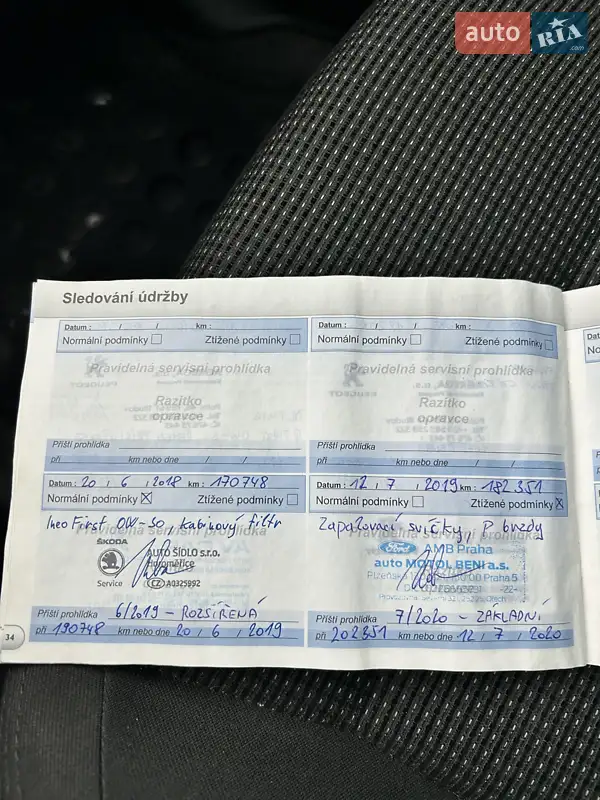 auto RIA .com
Sledování údržby
Datum : / / km :
Normální podmínky Ztížené podmínky
Pravidelná servisní prohlídka
Razítko
opravce
Příští prohlídka
při km nebo dne / /
Datum : 20 / 6 / 2018 km : 170748
Normální podmínky Ztížené podmínky
Ineo First 0W-30, kabinový filtr
ŠKODA
Service
AUTO ŠÍDLO s.r.o.
Horoměřice
CZ A0325992
Příští prohlídka 6/2019 - ROZŠÍŘENÁ
při 190748 km nebo dne 20 / 6 / 2019
34
Datum : / / km :
Normální podmínky Ztížené podmínky
Pravidelná servisní prohlídka
Razítko
opravce
Příští prohlídka
při km nebo dne / /
Datum : 12 / 7 / 2019 km : 182351
Normální podmínky Ztížené podmínky
Zapalovací svíčky, P brzdy
Ford AMB Praha
auto MOTOL BENI a.s.
Praha 5
-22-
Příští prohlídka 7/2020 - ZÁKLADNÍ
při 202351 km nebo dne 12 / 7 / 2020